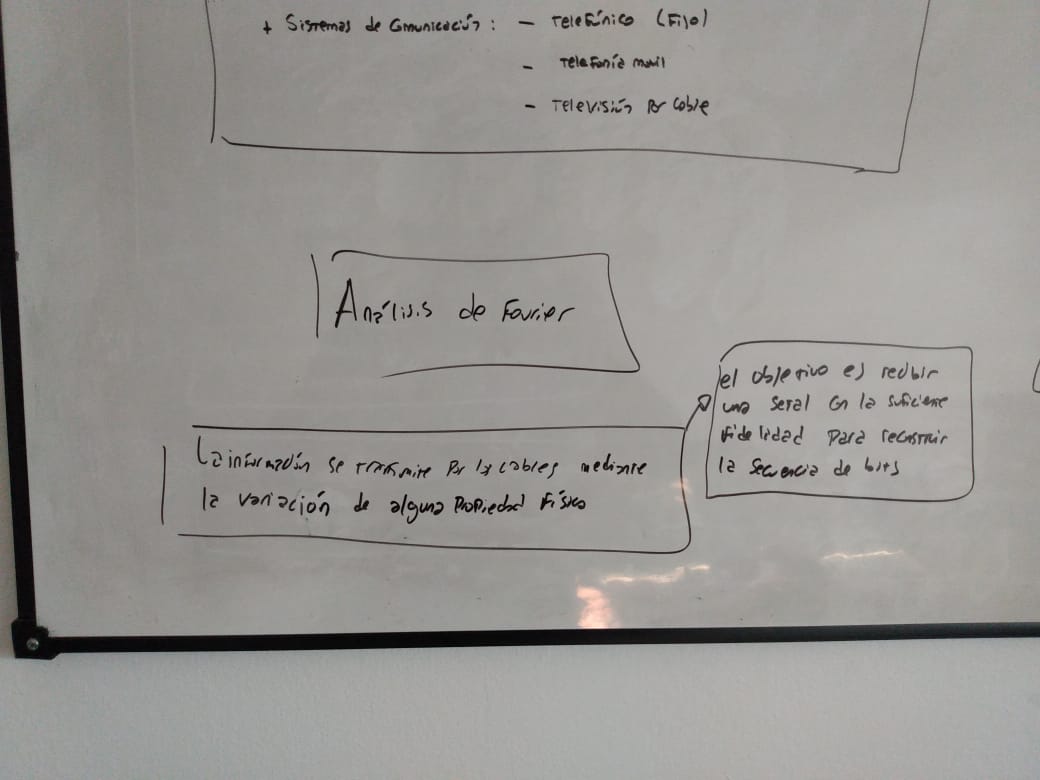 + Sistemas de Comunicación: - Telefónico (Fijo)
- Telefonía movil
- Televisión Por Cable
Análisis de Fourier
La información se transmite Por los cables mediante
la variación de alguna Propiedad Física
el objetivo es recibir
una señal con la suficiente
fidelidad para reconstruir
la secuencia de bits